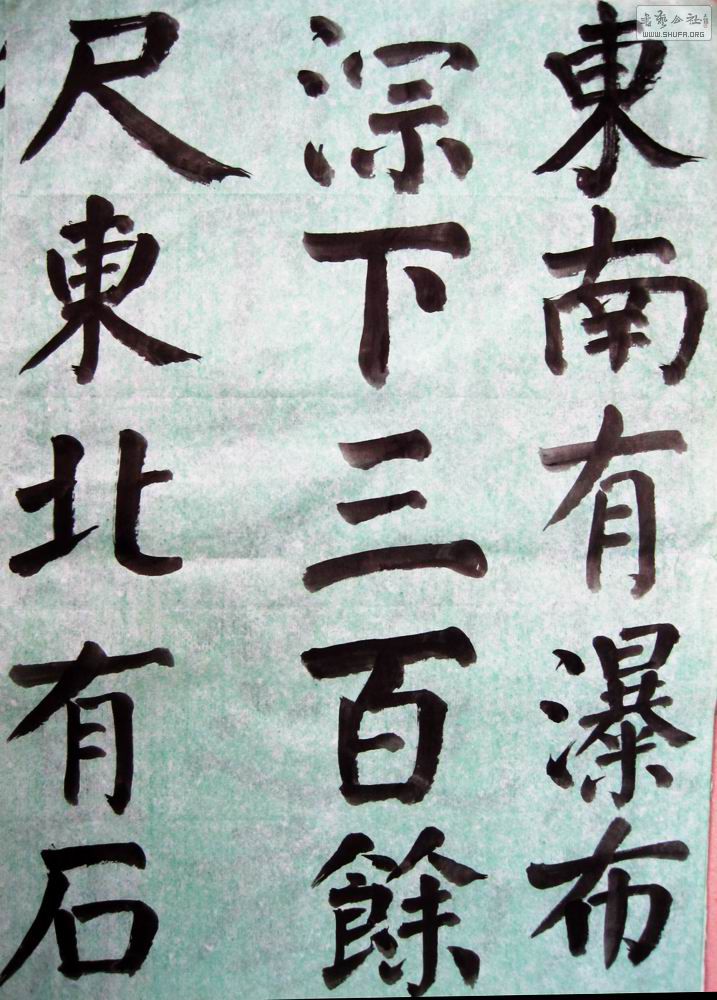 東南有瀑布
淙下三百餘
尺東北有石
WWW.SHUFA.ORG